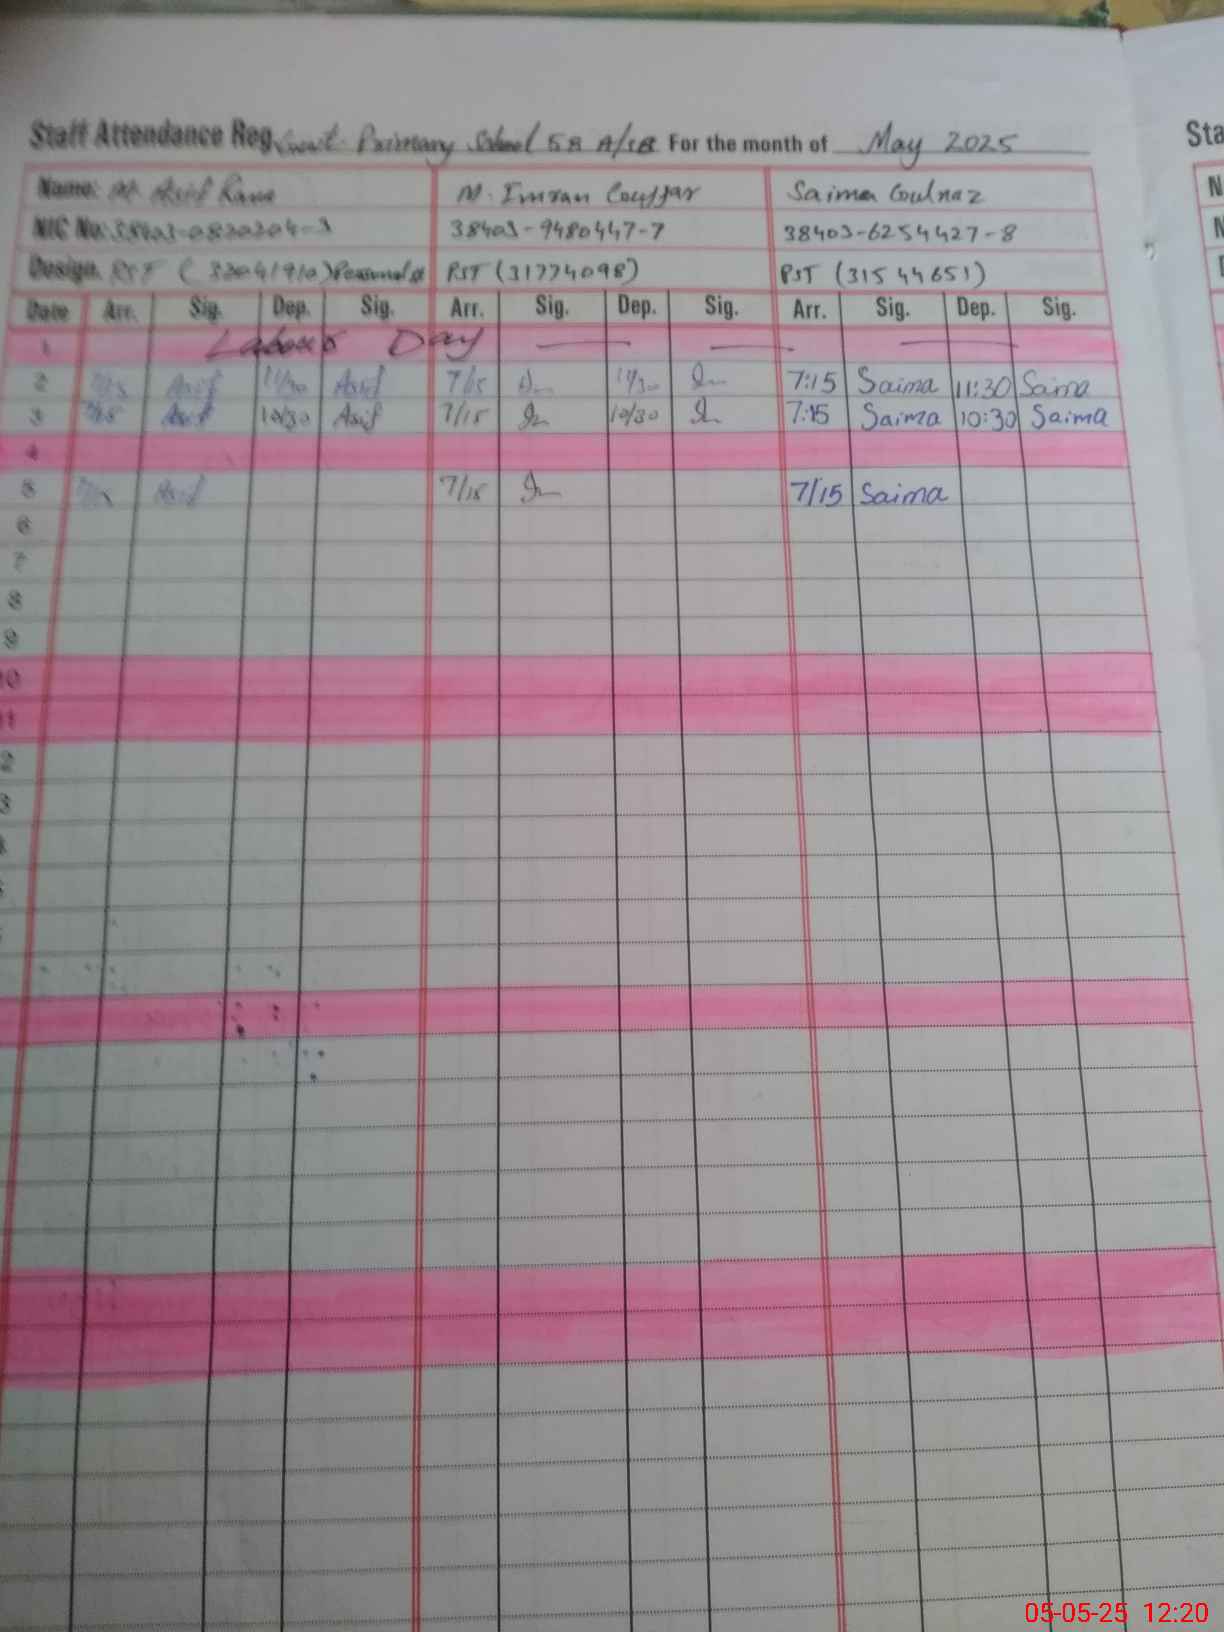 Staff Attendance Reg. Govt. Primary School 58 A/SB For the month of May 2025
Sta
Name: M Asif Rana M. Imran Gujjar Saima Gulnaz
NIC No. 38403-9480447-7 38403-6254427-8
Design. PST PST (31774098) PST (31544651)
Date Arr. Sig. Dep. Sig. Arr. Sig. Dep. Sig. Arr. Sig. Dep. Sig.
1 Labour Day
2 7/15 Asif 11/30 Asif 7/15 11/30 7:15 Saima 11:30 Saima
3 7/15 Asif 10/30 Asif 7/15 10/30 7:15 Saima 10:30 Saima
4
5 Asif 7/15 7/15 Saima
6
7
8
9
10
11
2
3
05-05-25 12:20